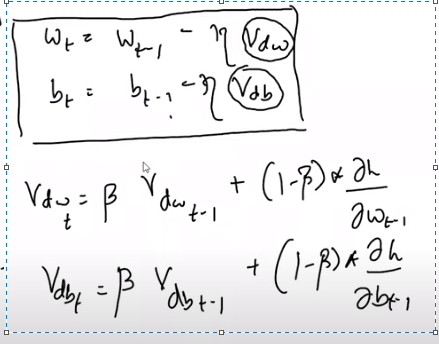 w_t = w_{t-1} - η V_{dw}
b_t = b_{t-1} - η V_{db}
V_{dw_t} = β V_{dw_{t-1}} + (1-β) * ∂h/∂w_{t-1}
V_{db_t} = β V_{db_{t-1}} + (1-β) * ∂h/∂b_{t-1}